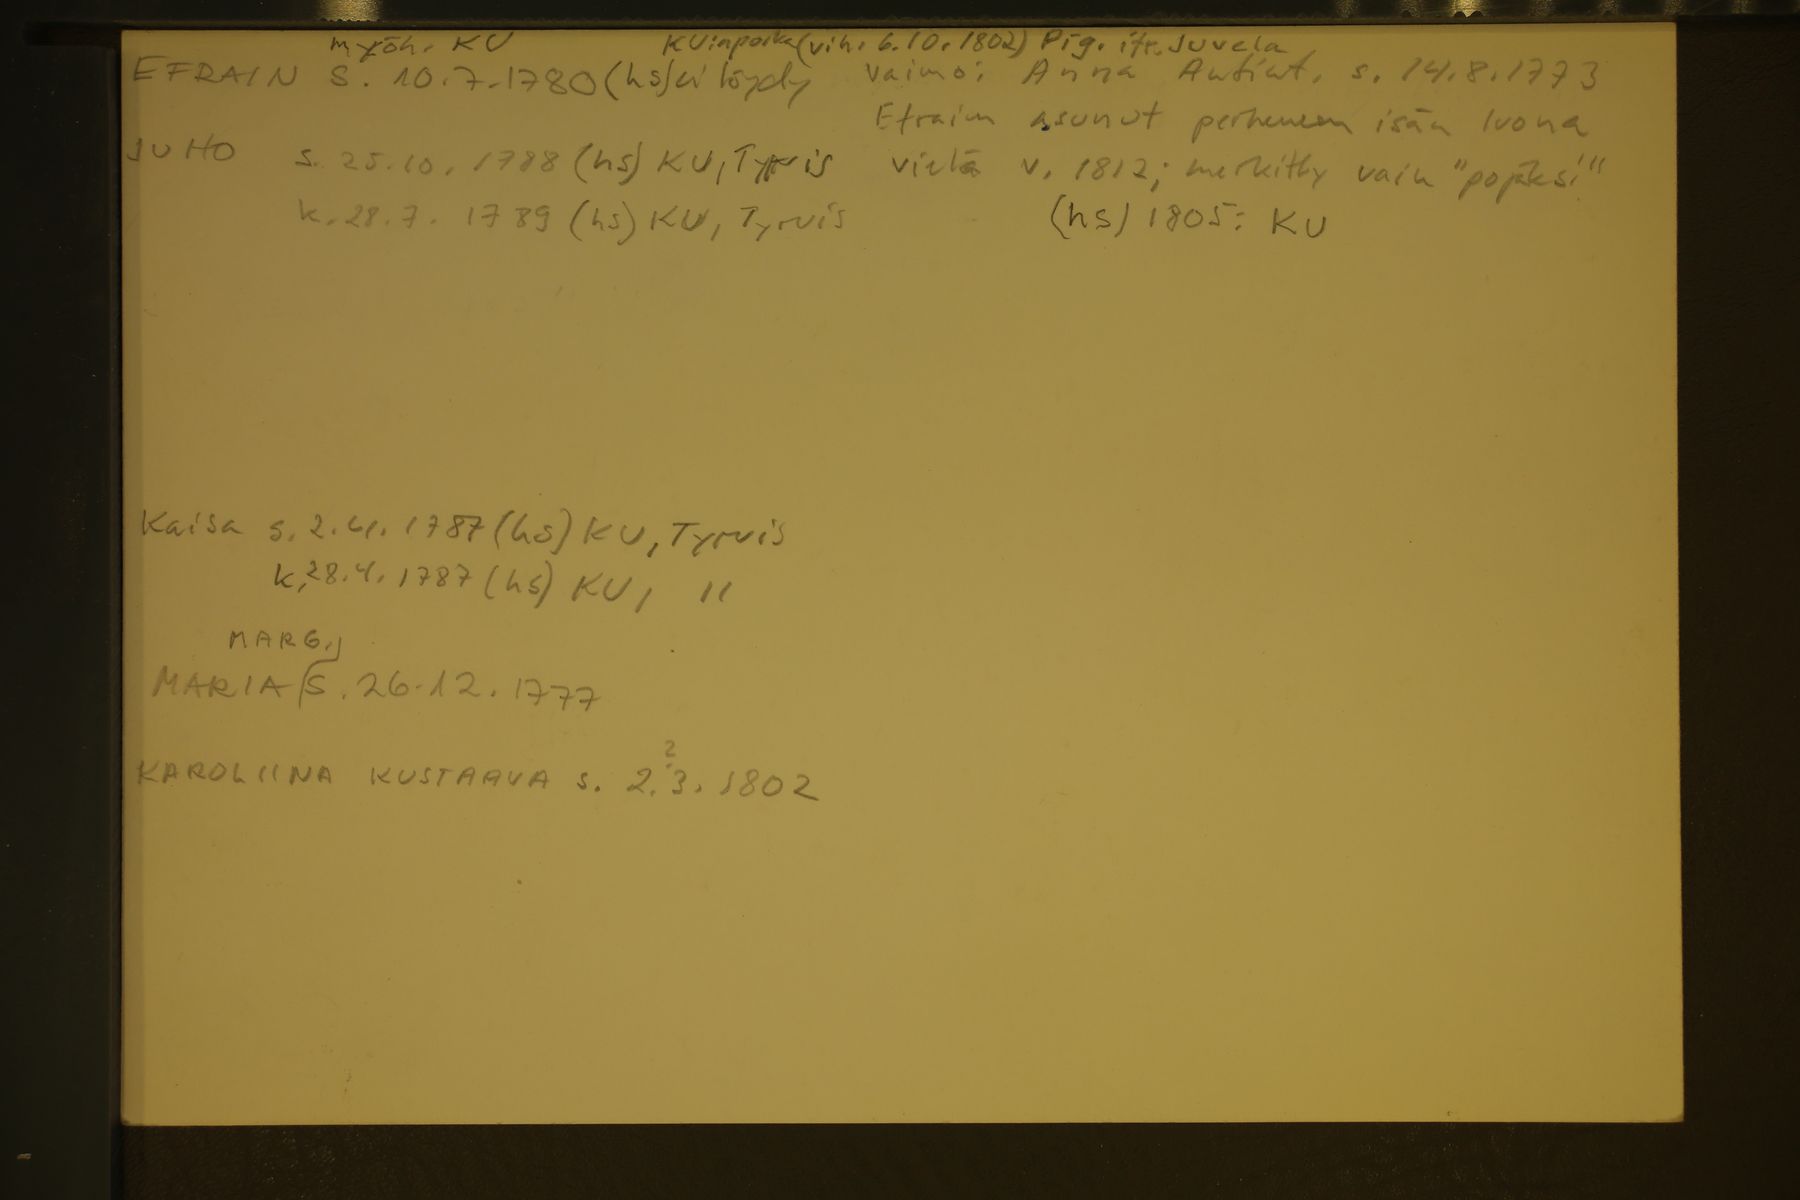 myöh. KU KU:npoika (vih. 6.10.1802) Pig. itr. Juvela
EFRAIN S. 10.7.1780 (hs) ei löydy vaimo: Anna Antint. s. 14.8.1773
Efraim asunut perheineen isän luona
JUHO s. 25.10.1788 (hs) KU, Tyrvis vielä v. 1812; merkitty vain "pojaksi"
k. 28.7.1789 (hs) KU, Tyrvis (hs) 1805: KU
Kaisa s. 2.4.1787 (hs) KU, Tyrvis
k. 28.4.1787 (hs) KU, "
MARG.
MARIA S. 26.12.1777
?
KAROLIINA KUSTAAVA s. 2.3.1802